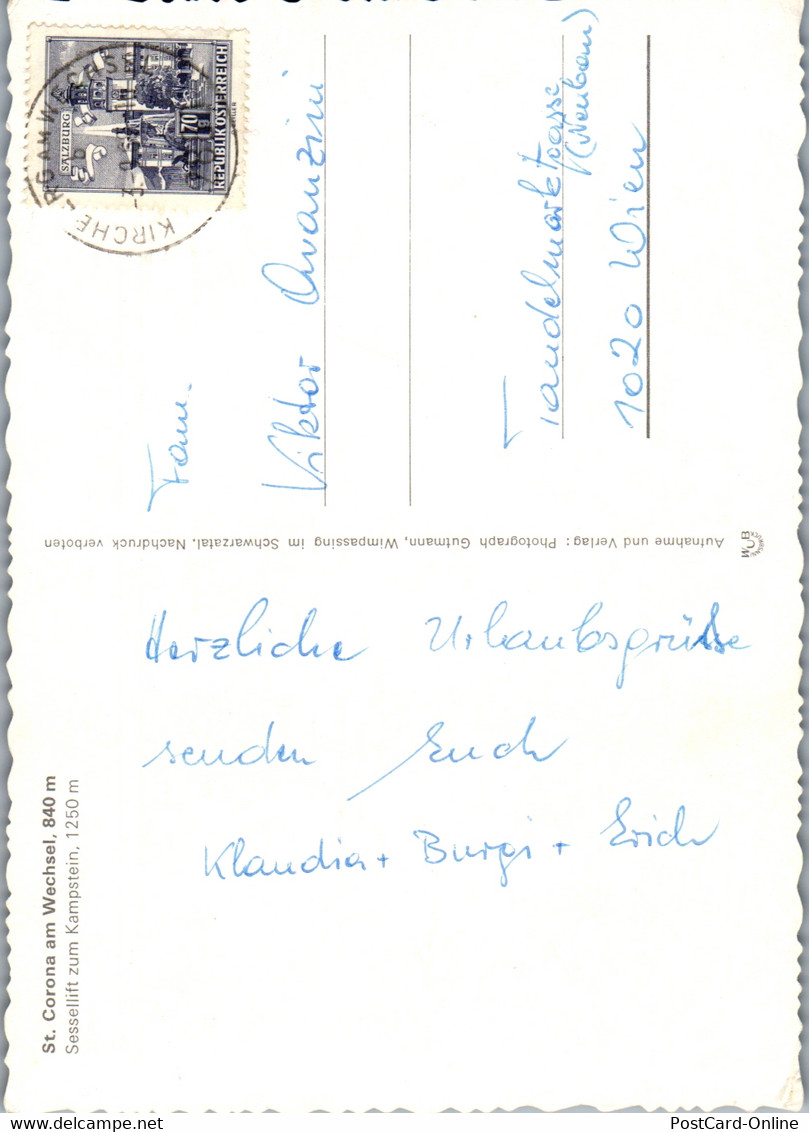 SALZBURG
70 g
REPUBLIK ÖSTERREICH
Fam.
Viktor Avanzini
Tandelmarktgasse
(Neubau)
1020 Wien
Aufnahme und Verlag: Photograph Gutmann, Wimpassing im Schwarzatal. Nachdruck verboten
Herzliche Urlaubsgrüße
senden Euch
Klaudia + Burgi + Erich
St. Corona am Wechsel, 840 m
Sessellift zum Kampstein, 1250 m
www.delcampe.net
PostCard-Online